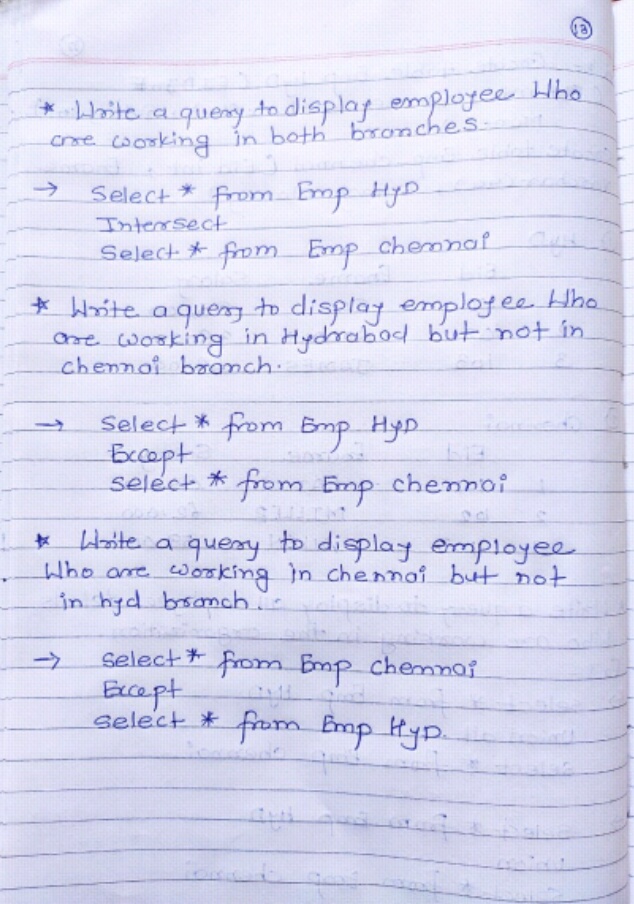 13
* Write a query to display employee Who
are working in both branches.
→ Select * from Emp HyD
Intersect
Select * from Emp chennai
* Write a query to display employee Who
are working in Hydrabad but not in
chennai branch.
→ Select * from Emp HyD
Except
select * from Emp chennai
* Write a query to display employee
Who are working in chennai but not
in hyd branch.
→ select * from Emp chennai
Except
select * from Emp HyD.